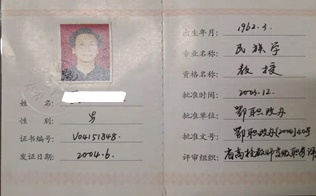 姓名:
性别: 男
证书编号: V04151848.
发证日期: 2004.6.
出生年月: 1962.3.
专业名称: 民族学
资格名称: 教授
批准时间: 2003.12.
批准单位: 鄂职改办
批准文号: 鄂职改办(2004)40号
评审组织: 省高校教师高级职务评